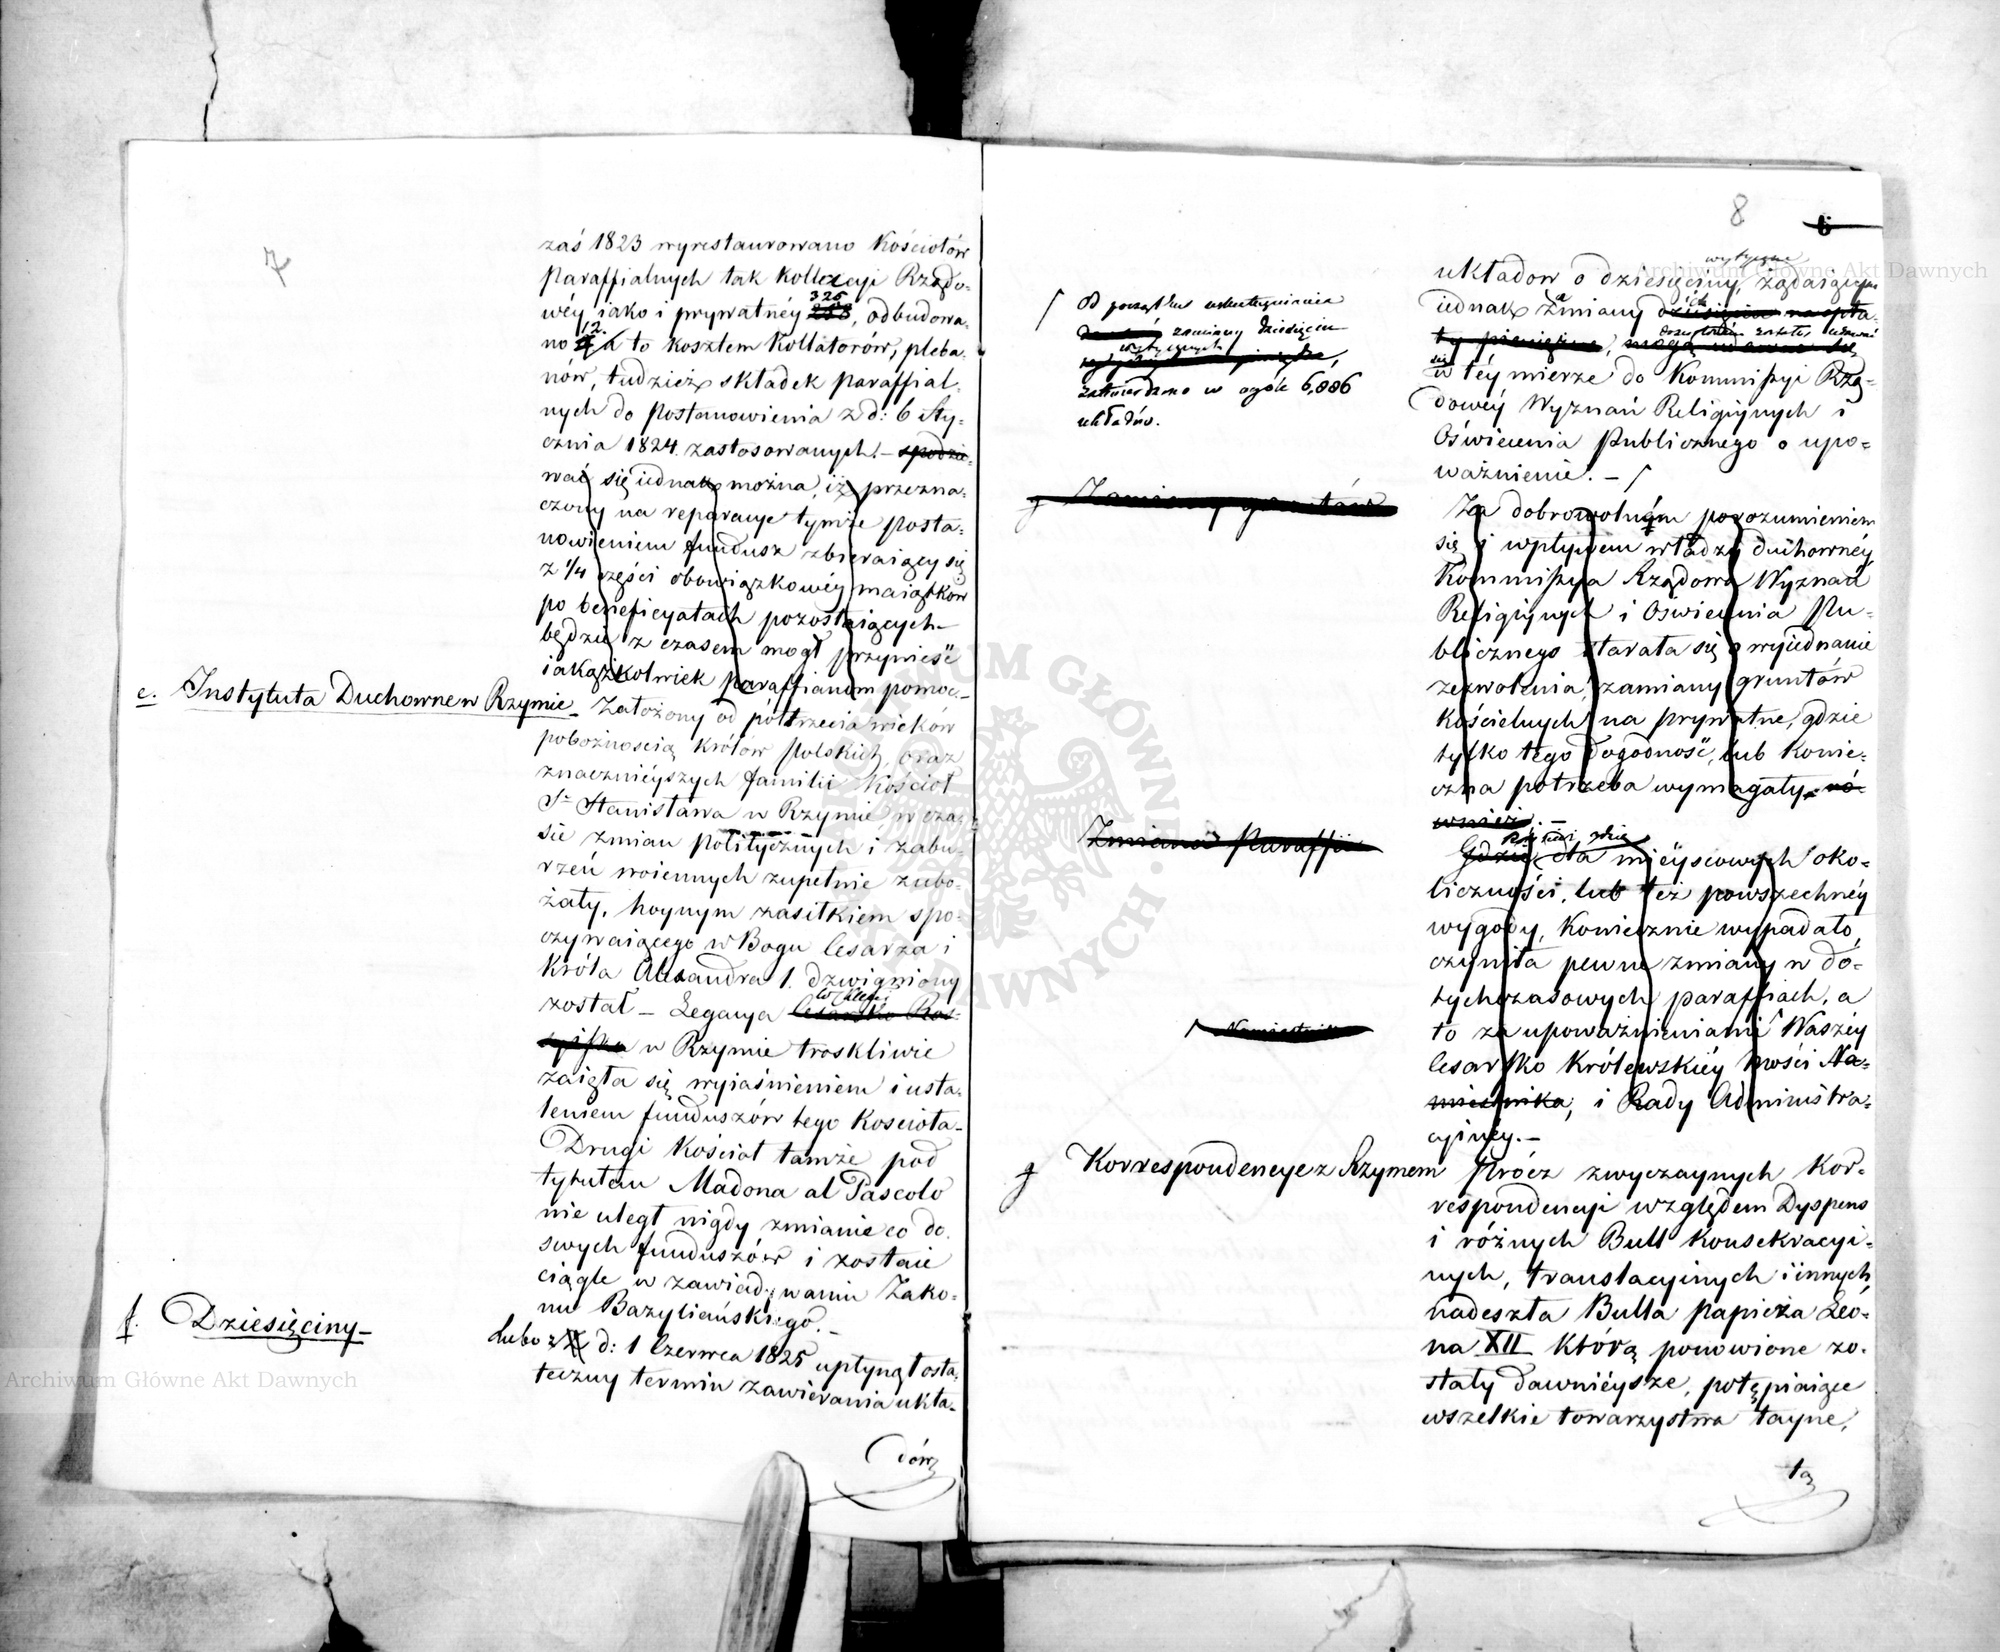 7
zaś 1823 wyrestaurowano Kościołów
Paraffialnych tak Kollacyi Rządo-
wéy iako i prywatnéy 325 258, odbudowa-
no 12. a to kosztem Kollatorów, pleba-
nów, tudzież składek paraffial-
nych do Postanowienia z d: 6 Sty-
cznia 1824. zastosowanych. – spodzie-
wać się iednak można, iż przezna-
czony na reparacye tymże posta-
nowieniem fundusz zbieraiący się
z 1/4 części obowiązkowéy maiątków
po beneficyatach pozostaiących
będzie z czasem mógł przynieść
iakążkolwiek paraffianom pomoc. –
e. Instytuta Duchowne w Rzymie
Założony od półtrzecia wieków
pobożnością królów Polskich, oraz
znacznieyszych familii Kościół
St Stanisława w Rzymie, w cza-
sie zmian politycznych i zabu-
rzeń woiennych zupełnie zubo-
żały, hoynym zasiłkiem spo-
czywaiącego w Bogu Cesarza i
Króla Alexandra 1. dzwigniony
został – Legacya W. Kkiéi Cesarsko Ros-
syiska w Rzymie troskliwie
zaięła się wyiaśnieniem i usta-
leniem funduszów tego Kościoła –
Drugi Kościół tamże pod
tytułem Madona al Pascolo
nie uległ nigdy zmianie co do
swych funduszów i zostaie
ciągle w zawiadywaniu Zako-
nu Bazyliańskiego. –
f. Dziesięciny –
Lubo z d: 1 Czerwca 1825 upłynął osta-
teczny termin zawierania ukła-
dów
8
6
układow o dziesięciny wytyczne, żądaiącym
iednak zamiany ich dziesięcin na opła-
ty pieniężne, mogą udawać się
się w téy mierze do Kommissyi Rzą-
dowéy Wyznań Religiynych i
Oświecenia Publicznego o upo-
ważnienie. –
Od początku uskutecznienia
zamiany dziesięcin
wytycznych
zatwierdzono w ogóle 6,886
układów.
g Zamiany gruntów
Za dobrowolnym porozumieniem
się i wpływem władzy duchownéy
Kommissya Rządowa Wyznań
Religiynych i Oświecenia Pu-
blicznego starała się o wyiednanie
zezwolenia zamiany gruntów
Kościelnych na prywatne, gdzie
tylko tego dogodność, lub Konie-
czna potrzeba wymagały, ró-
wnież. –
Zmiana Paraffii
Gdzie dla mieyscowych oko-
liczności, lub też powszechnéy
wygody, Koniecznie wypadało,
czyniła pewne zmiany w do-
tychczasowych paraffiach, a
to za upoważnieniami Waszéy
Cesarsko Królewskiéy Mości Na-
miestnika, i Rady Administra-
cyinéy. –
Namiestnika
g Korrespondencye z Rzymem
Prócz zwyczaynych Kor-
respondencyi względem Dyspens
i różnych Bull Konsekracyi-
nych, translacyinych i innych,
nadeszła Bulla papieża Leo-
na XII którą ponowione zo-
stały dawnieysze, potępiaiące
wszelkie towarzystwa tayne,
ta
Archiwum Główne Akt Dawnych
Archiwum Główne Akt Dawnych
ARCHIWUM GŁÓWNE AKT DAWNYCH